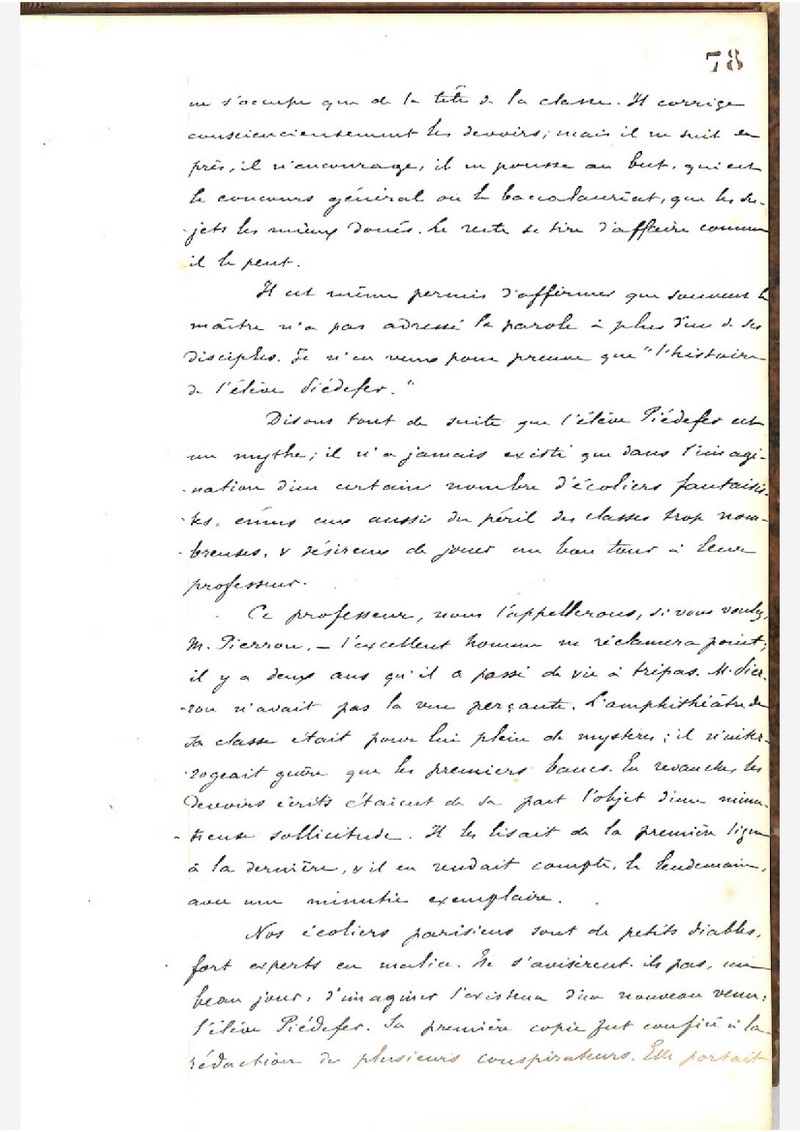 78
ne s'occupe que de la tête de la classe. Il corrige
consciencieusement les devoirs; mais il ne suit de
près, il n'encourage, il ne pousse au but, qui est
le concours général ou le baccalauréat, que les su-
-jets les mieux doués. Le reste se tire d'affaire comme
il le peut.
Il est même permis d'affirmer que souvent le
maître n'a pas adressé la parole à plus d'un de ses
disciples. Je n'en veux pour preuve que "l'histoire
de l'élève Piédefer."
Disons tout de suite que l'élève Piédefer est
un mythe; il n'a jamais existé que dans l'imagi-
-nation d'un certain nombre d'écoliers fantaisis-
-tes, émus eux aussi du péril des classes trop nom-
-breuses, & désireux de jouer un bon tour à leur
professeur.
Ce professeur, nous l'appellerons, si vous voulez,
M. Pierron, — l'excellent homme ne réclamera point;
il y a deux ans qu'il a passé de vie à trépas. M. Pier-
-ron n'avait pas la vue perçante. L'amphithéâtre de
sa classe était pour lui plein de mystères; il n'inter-
-rogeait guère que les premiers bancs. En revanche, les
devoirs écrits étaient de sa part l'objet d'une minu-
-tieuse sollicitude. Il les lisait de la première ligne
à la dernière, & il en rendait compte, le lendemain,
avec une minutie exemplaire.
Nos écoliers parisiens sont de petits diables,
fort experts en malice. Ne s'avisèrent-ils pas, un
beau jour, d'imaginer l'existence d'un nouveau venu,
l'élève Piédefer. Sa première copie fut confiée à la
rédaction de plusieurs conspirateurs. Elle portait